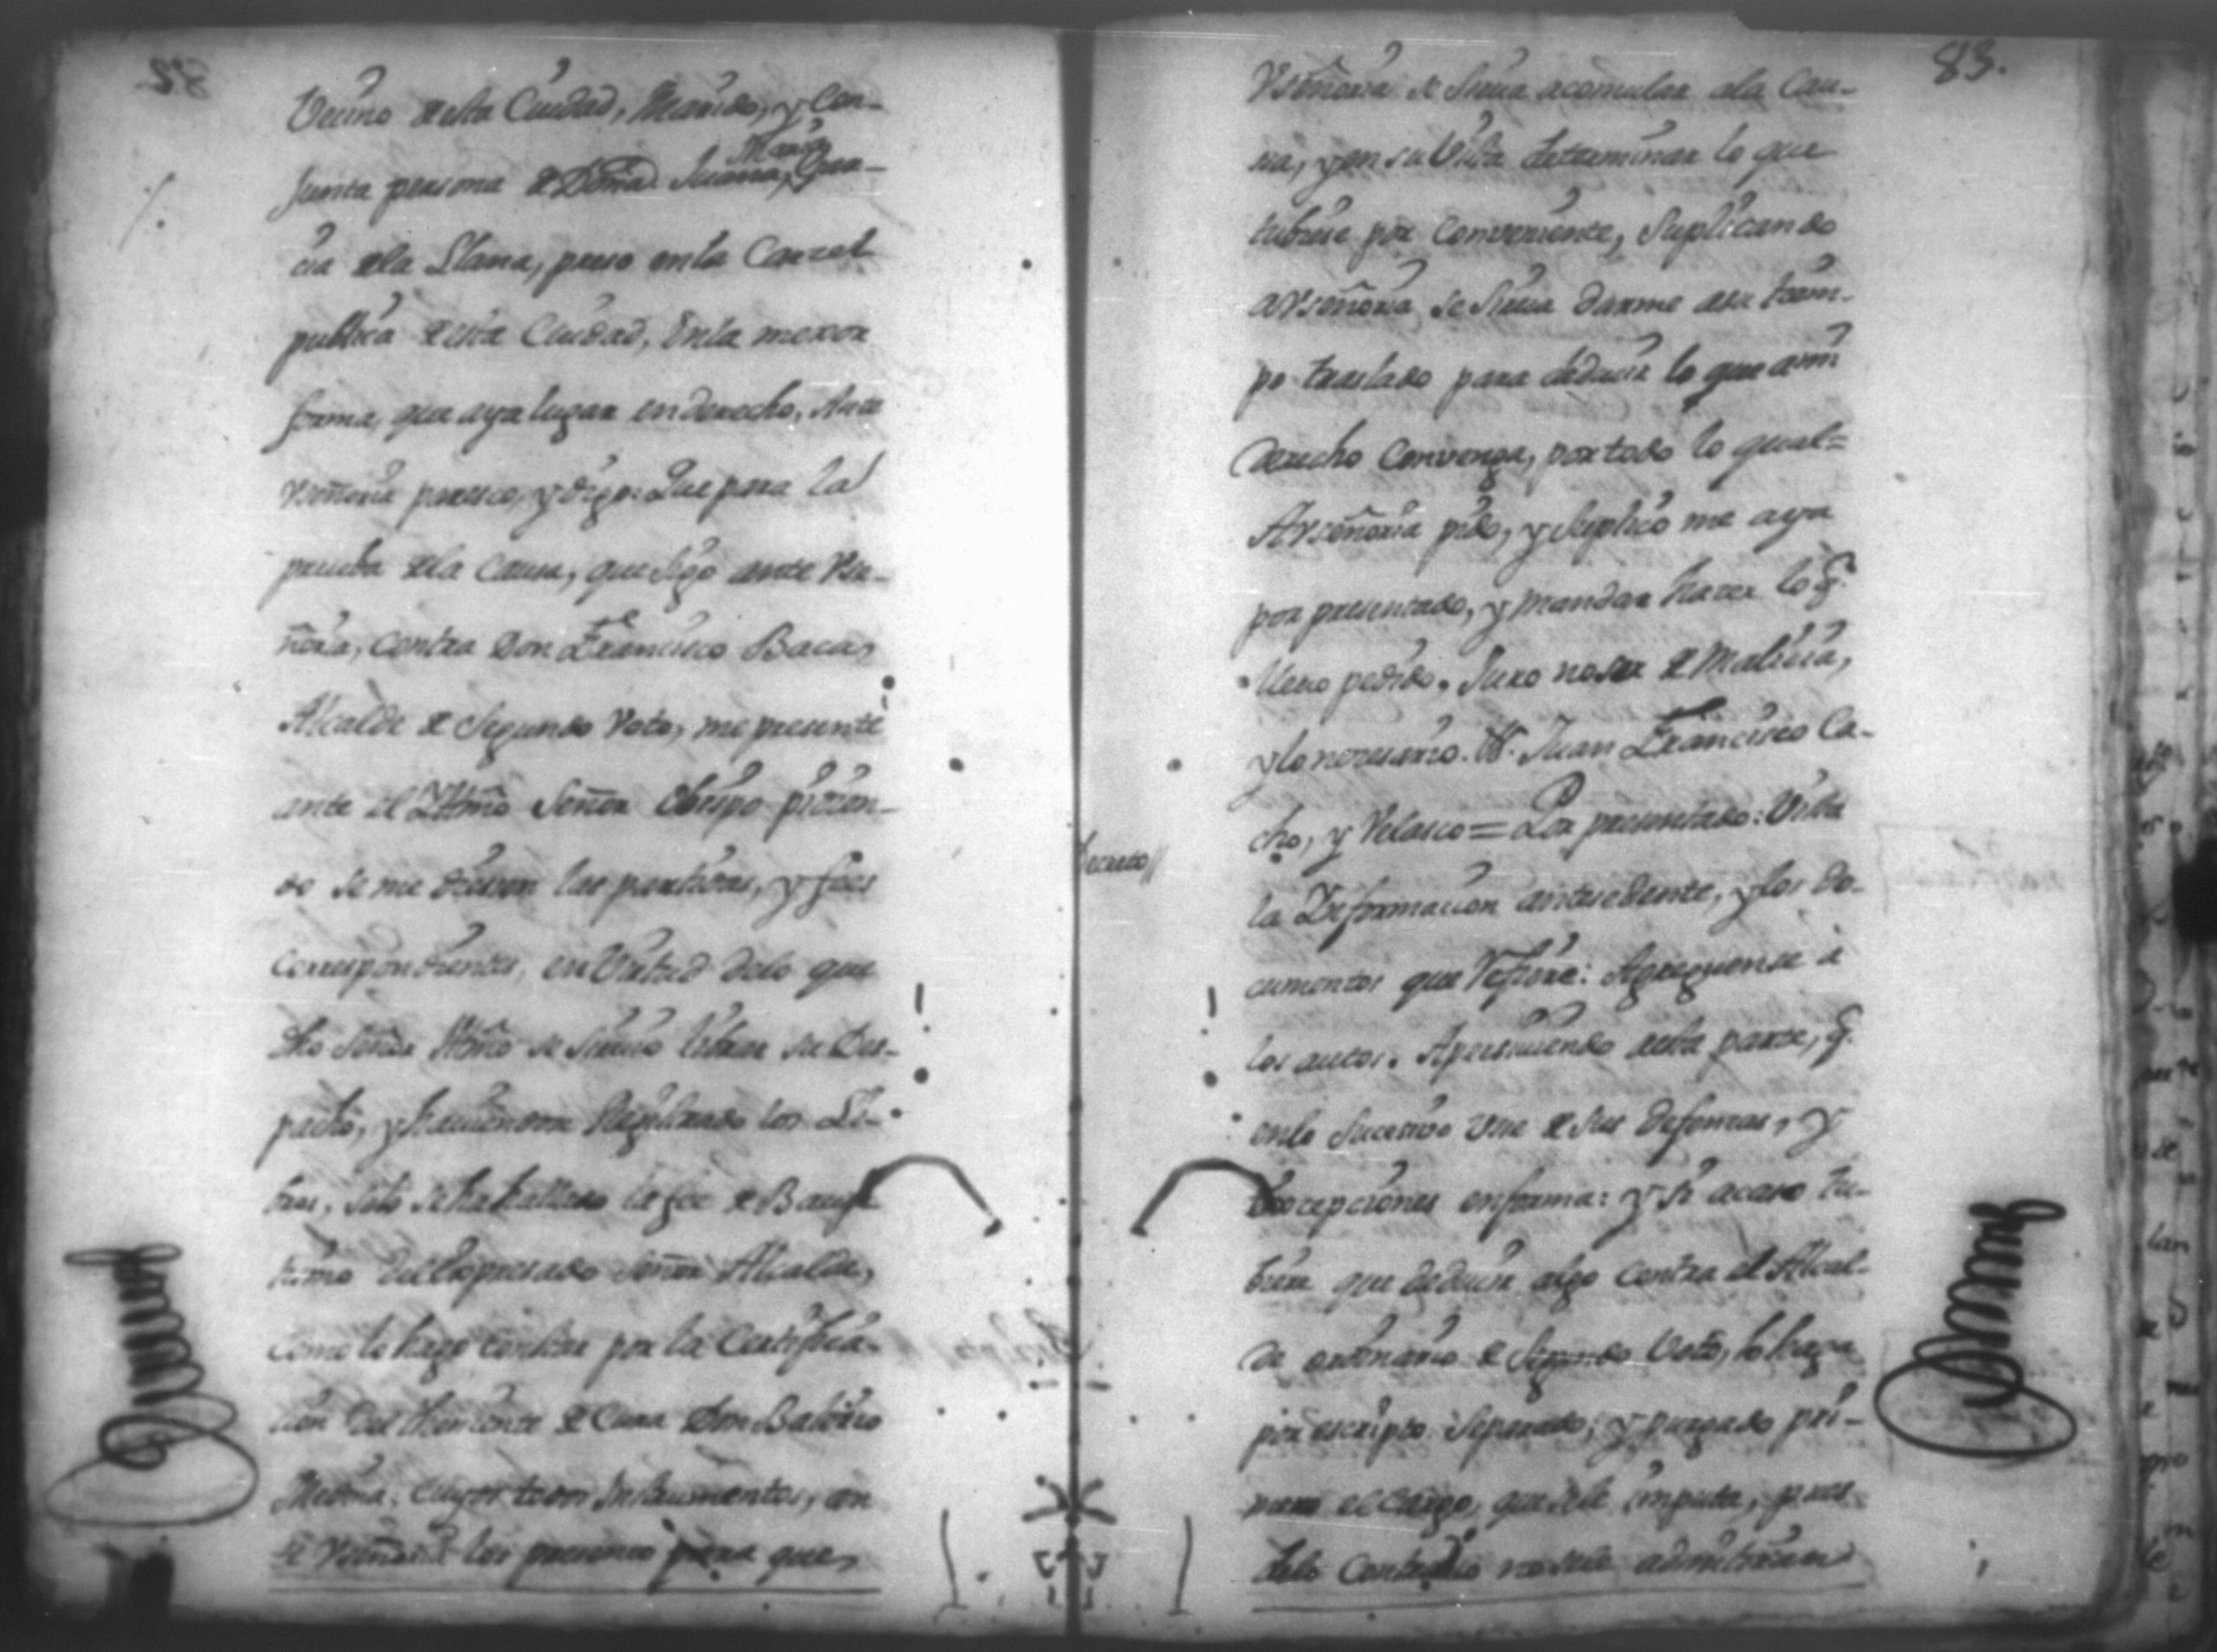 Vecino de esta Ciudad, Marido, y Con-
Junta persona de Doña Juana, Maria Gra-
cia de la Llana, preso en la Carzel
publica de esta Ciudad, en la mexor
forma, que aya lugar en derecho, Ante
Vseñoria paresco, y digo: Que para la
prueba de la Causa, que sigo ante Vse-
ñoria, contra Don Francisco Baca,
Alcalde de Segundo Voto, me presenté
ante el Yltmo Señor Obispo pidien-
do se me diesen las partidas, y fees
correspondientes, en Virtud delo que
dho Señor Yltmo se sirvio librar su Des-
pacho, y haviendose Registrado los Li-
bros, solo se ha hallado la fee de Baup-
tismo del Expresado Señor Alcalde,
como lo hago constar por la Certifica-
cion del Theniente de Cura Don
Medina: cuyos todos Instrumentos, an-
te Vseñoria los presento para que,
83.
Vseñoria se sirva acomular ala Cau-
sa, y en su Vista determinar lo que
tubiese por Conveniente, Suplicando
a Vseñoria se sirva darme asu tiem-
po traslado para deducir lo que ami
derecho Convenga, por todo lo qual=
A Vseñoria pido, y Suplico me aya
por presentado, y mandar hazer lo q.
llevo pedido. Juro no ser de Malicia,
y lo nezesario. Vª. Juan Francisco Ca-
cho, y Velasco = Por presentado: Vista
Decreto//
la Ynformacion antesedente, y los Do-
cumentos que Refiere: Agreguense à
los autos. Apersiviendo aesta parte, q.
enlo Sucesivo Use de sus defensas, y
Excepciones en forma: y si acaso tu-
biere que deducir algo contra el Alcal-
de ordinario de Segundo Voto, lo haga
por escripto Separado; y purgado pri-
mero el cargo, que sele imputa, pues
delo Contrario no sele admitiran